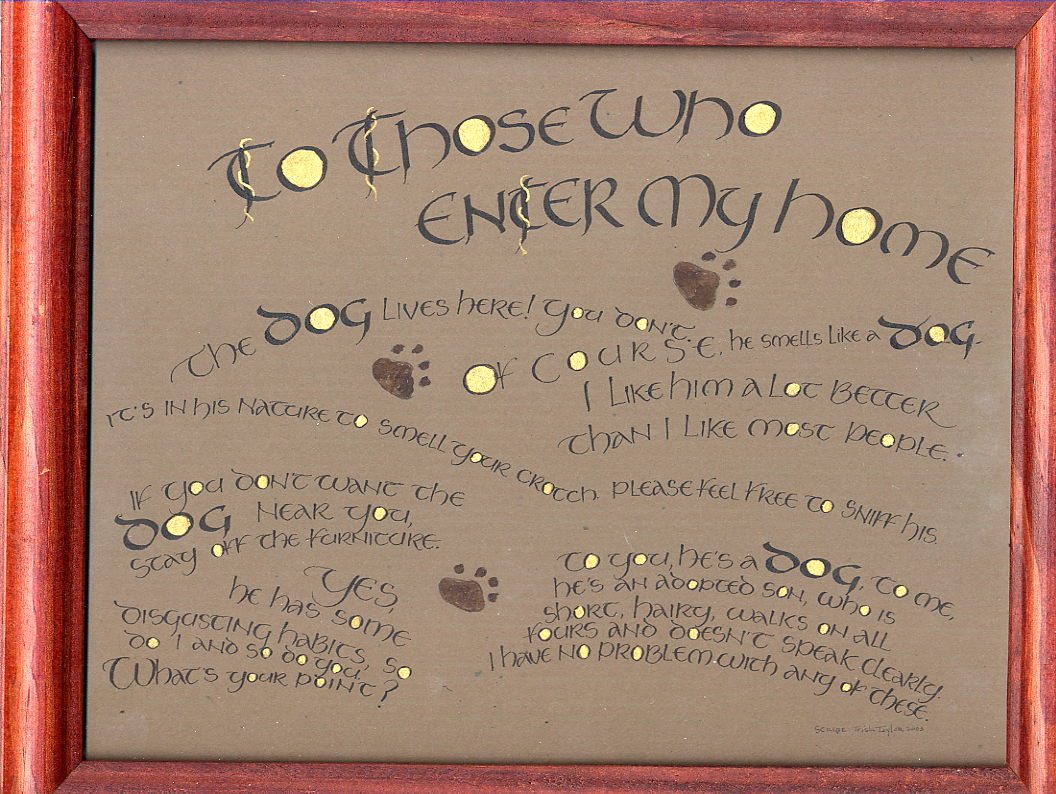 To Those Who
Enter My Home
The DOG lives here! You don't.
Of course, he smells like a DOG.
I like him a lot better
than I like most people.
It's in his nature to smell your crotch. Please feel free to sniff his.
If you don't want the
DOG near you,
stay off the furniture.
Yes,
he has some
disgusting habits, so
do I and so do you.
What's your point?
To you, he's a DOG, to me,
he's an adopted son, who is
short, hairy, walks on all
fours and doesn't speak clearly.
I have no problem with any of these.
Scribe Trish Taylor 2003